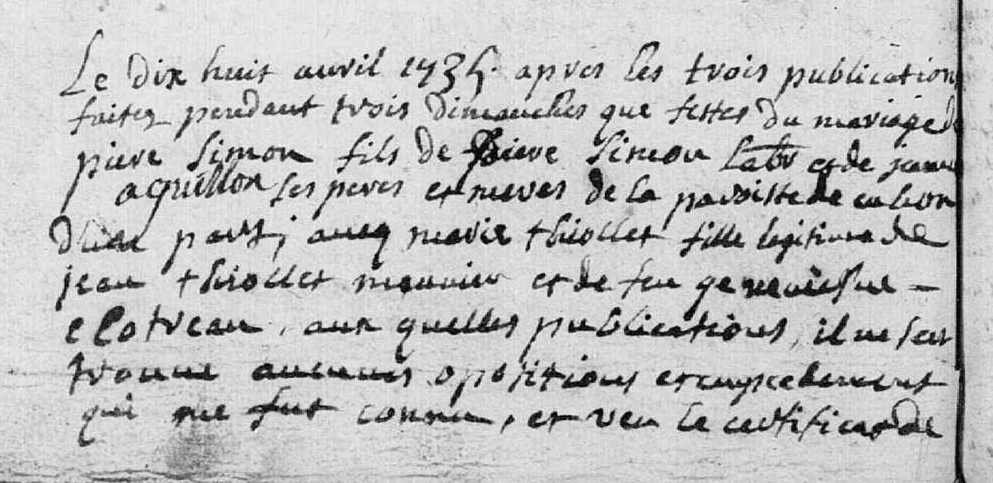 Le dix huit avril 1735. apres les trois publications
faites pendant trois dimanches que festes du mariage de
piere Simon fils de piere Simon labr et de jeanne
aguillon ses peres et meres de la paroisse de
dune part, avecq marie thiollet fille legitime de
jean thiollet meunier et de feu geneviefve –
clotreau, aux quelles publications, il ne sest
trouvé aucunes opositions et empechement
qui me fut connu, et veu le certificat de